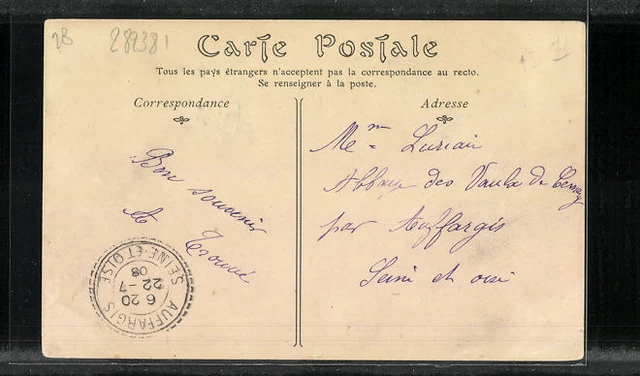 28
282381
Carte Postale
Tous les pays étrangers n'acceptent pas la correspondance au recto.
Se renseigner à la poste.
Correspondance
Adresse
Bon souvenir
Mme
Abbaye des Vaulx de Cernay
par Auffargis
Seine et oise
AUFFARGIS
6 20
22 -7
08
SEINE-ET-OISE